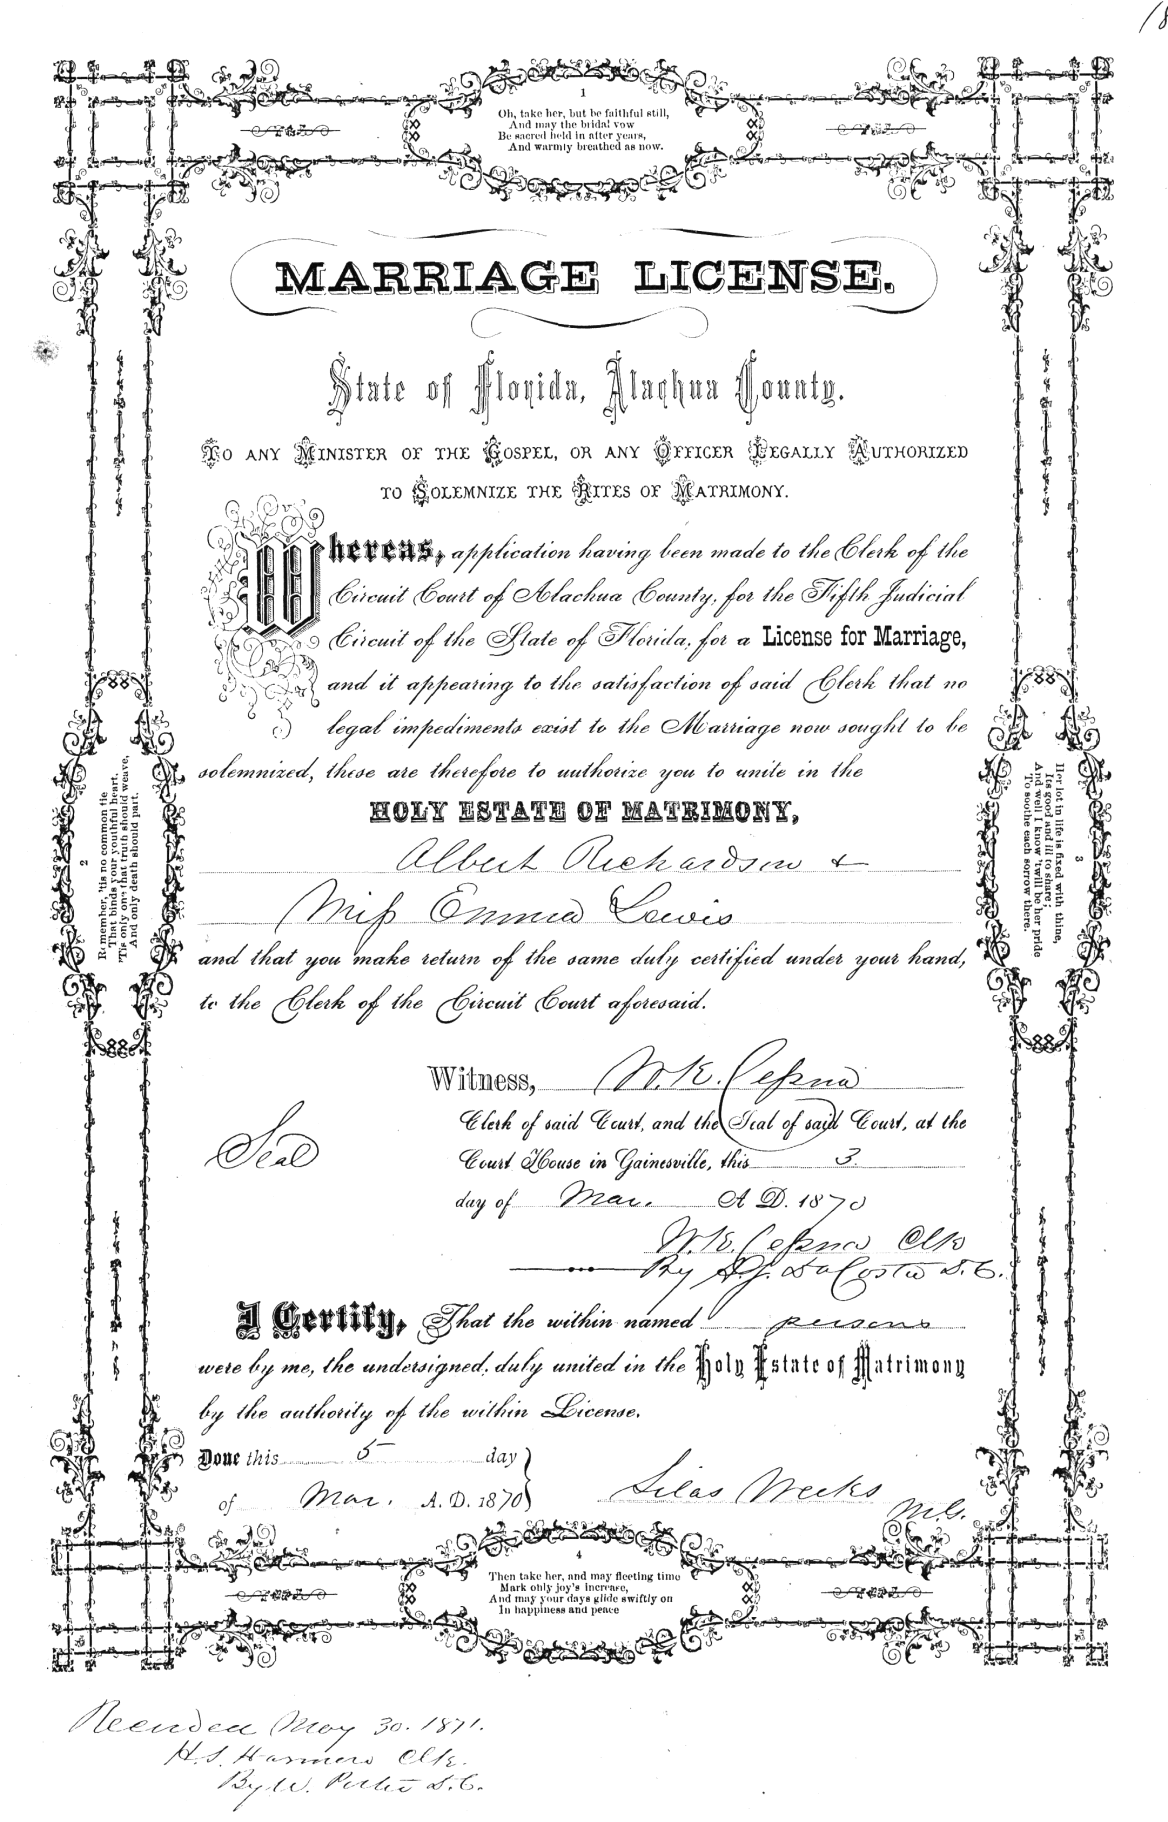 18
1
Oh, take her, but be faithful still,
And may the bridal vow
Be sacred held in after years,
And warmly breathed as now.
MARRIAGE LICENSE.
State of Florida, Alachua County.
TO ANY MINISTER OF THE GOSPEL, OR ANY OFFICER LEGALLY AUTHORIZED
TO SOLEMNIZE THE RITES OF MATRIMONY.
Whereas, application having been made to the Clerk of the
Circuit Court of Alachua County, for the Fifth Judicial
Circuit of the State of Florida, for a License for Marriage,
and it appearing to the satisfaction of said Clerk that no
legal impediments exist to the Marriage now sought to be
solemnized, these are therefore to authorize you to unite in the
HOLY ESTATE OF MATRIMONY,
Albert Richardson &
Miss Emma Lewis
and that you make return of the same duly certified under your hand,
to the Clerk of the Circuit Court aforesaid.
2
Remember, 'tis no common tie
That binds your youthful heart,
'Tis only one that truth should weave,
And only death should part.
3
Her lot in life is fixed with thine,
Its good and ill to share;
And well I know 'twill be her pride
To soothe each sorrow there.
Witness, W. K. Cessna
Clerk of said Court, and the Seal of said Court, at the
Seal
Court House in Gainesville, this 3.
day of Mar. A. D. 1870
W. K. Cessna Clk
By A. J. DaCosta D. C.
I Certify, That the within named persons
were by me, the undersigned, duly united in the Holy Estate of Matrimony
by the authority of the within License.
Done this 5 day
of Mar. A. D. 1870
Silas Weeks
M.G.
4
Then take her, and may fleeting time
Mark only joy's increase,
And may your days glide swiftly on
In happiness and peace
Recorded May 30. 1871.
H. S. Harmon Clk.
By W. Porter D. C.